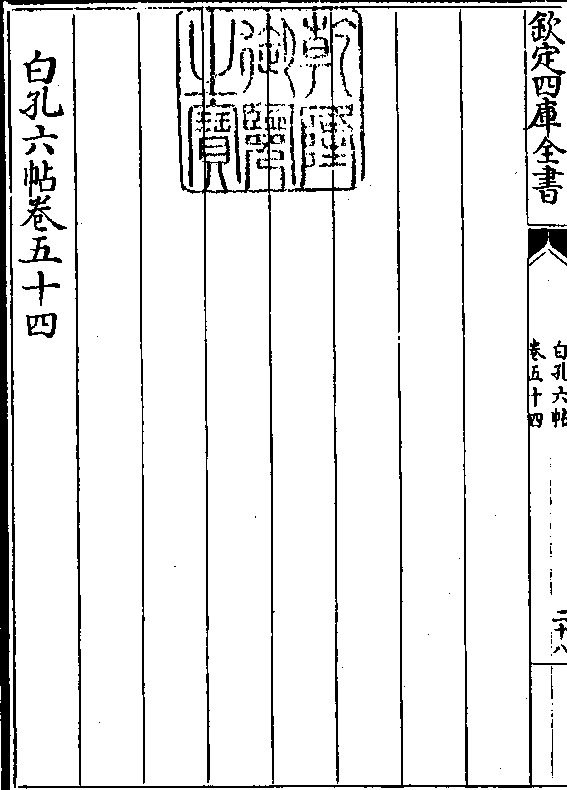 欽定四庫全書
白孔六帖
卷五十四
二十八
乾隆御覽之寶
白孔六帖卷五十四